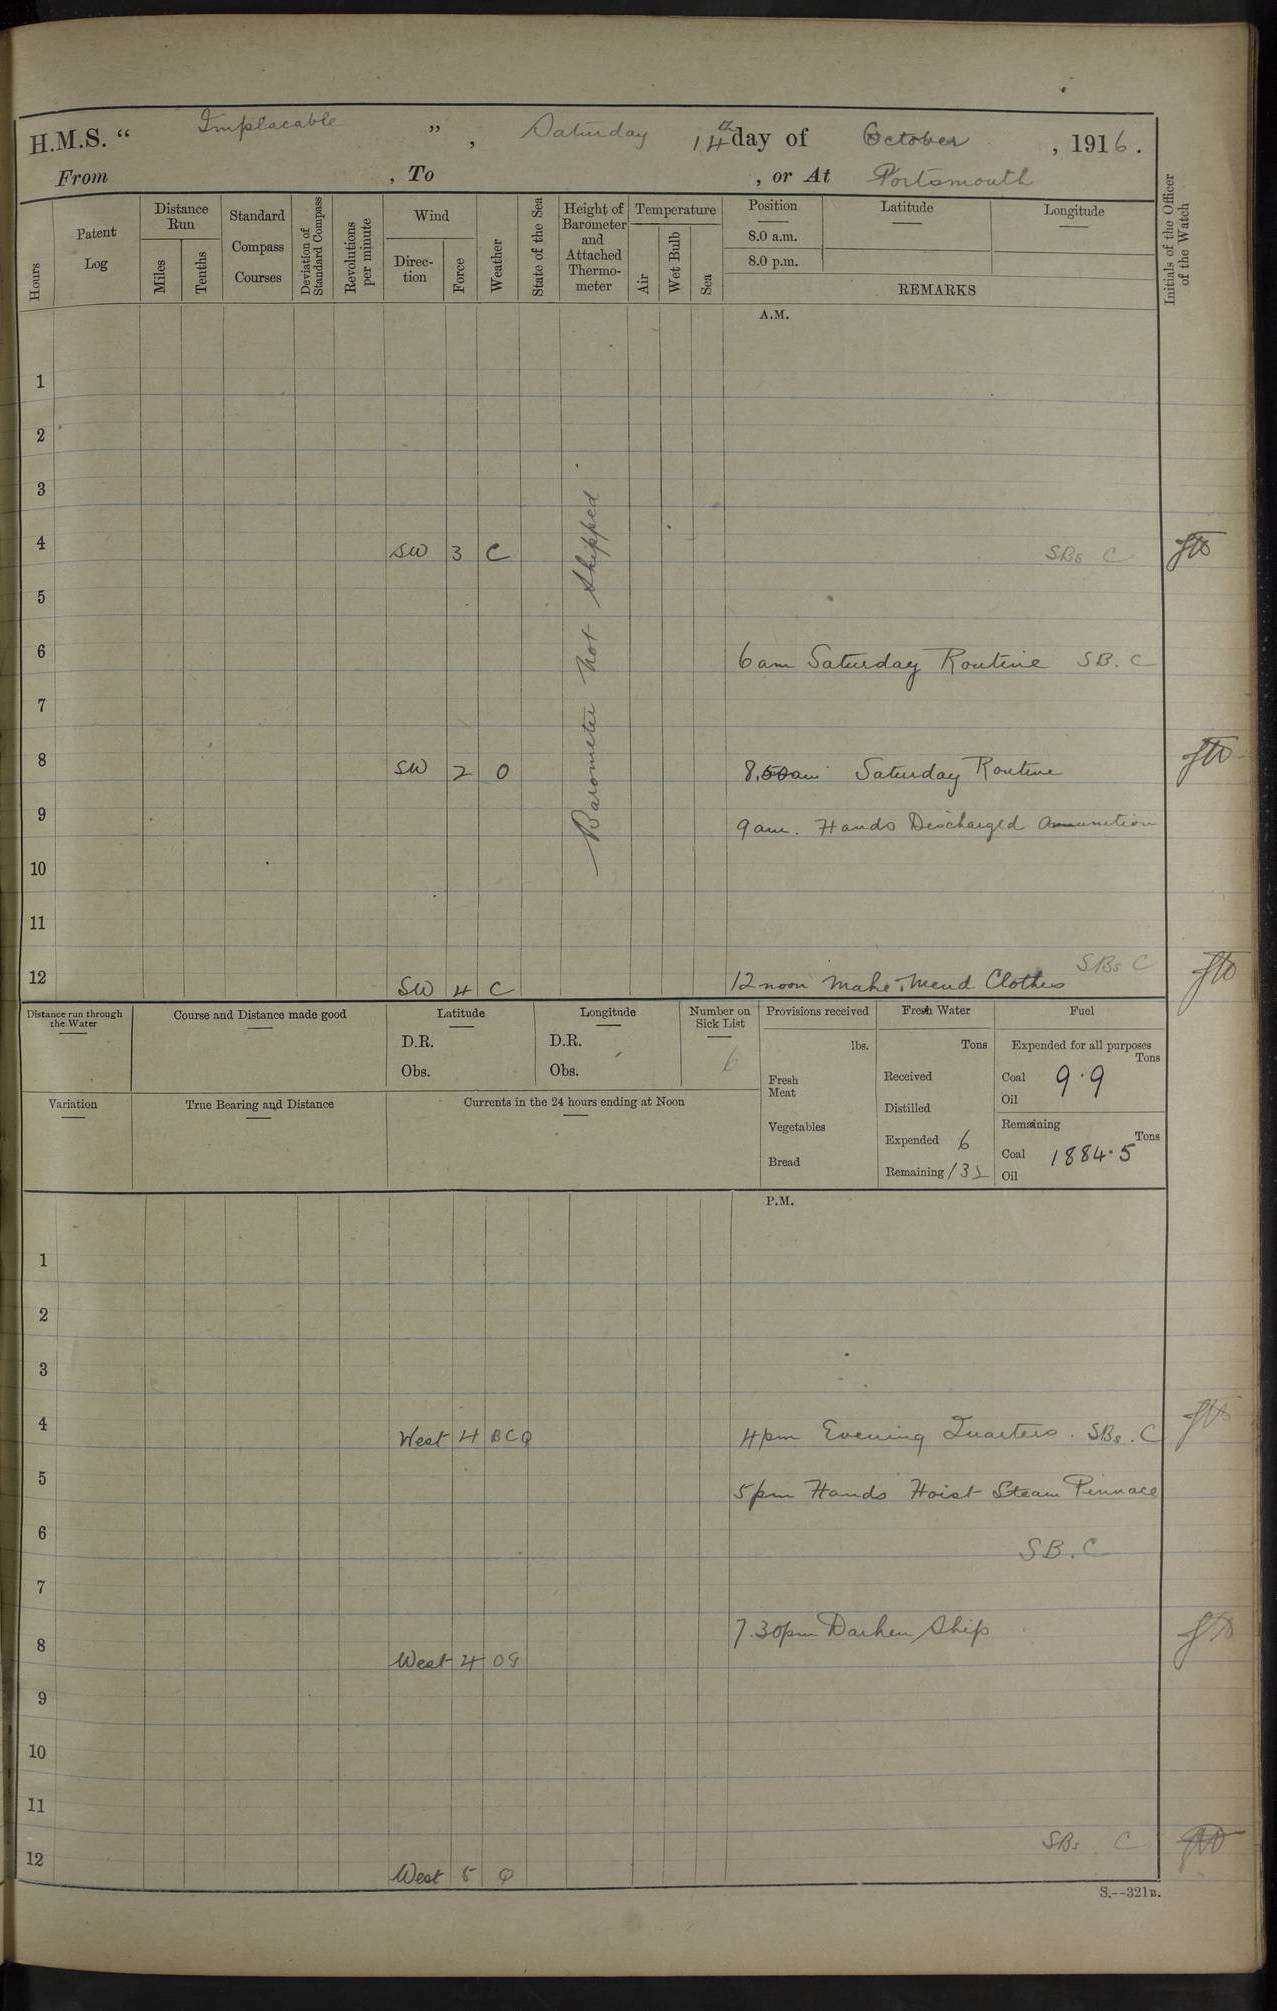 H.M.S. " Implacable ", Saturday 14th day of October, 1916.
From , To , or At Portsmouth
Hours
Patent Log
Distance Run
Miles
Tenths
Standard Compass Courses
Deviation of Standard Compass
Revolutions per minute
Wind
Direc-tion
Force
Weather
State of the Sea
Height of Barometer and Attached Thermo-meter
Temperature
Air
Wet Bulb
Sea
Position
8.0 a.m.
8.0 p.m.
Latitude
Longitude
REMARKS
Initials of the Officer of the Watch
A.M.
Barometer not Shipped
1
2
3
4 SW 3 C SBs C
5
6 6 am Saturday Routine SB. C
7
8 SW 2 O 8. Saturday Routine
9 9 am. Hands Discharged Ammunition
10
11
SBs C
12 SW 4 C 12 noon Make & Mend Clothes
Distance run through the Water
Course and Distance made good
Latitude
D.R.
Obs.
Longitude
D.R.
Obs.
Number on Sick List
6
Provisions received
lbs.
Fresh Meat
Vegetables
Bread
Fresh Water
Tons
Received
Distilled
Expended 6
Remaining 132
Fuel
Expended for all purposes
Tons
Coal 9.9
Oil
Remaining
Tons
Coal 1884.5
Oil
Variation
True Bearing and Distance
Currents in the 24 hours ending at Noon
P.M.
1
2
3
4 West 4 BCQ 4 pm Evening Quarters. SBs. C
5 5 pm Hands Hoist Steam Pinnace
6 SB. C
7
7.30 pm Darken Ship
8 West 4 OG
9
10
11
SBs C
12 West 5 Q
S.--321B.